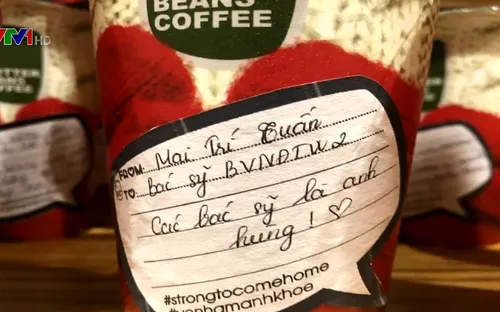 VTV1 HD
BEANS
COFFEE
BEANS
COFFEE
FROM: Mai Trí Tuấn
TO: bác sỹ B.V.N.Đ.T.W.2
Các bác sỹ là anh
hùng ! ♡
#strongtocomehome
#venhamanhkhoe